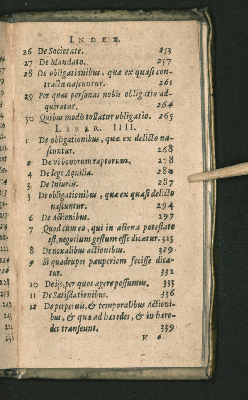 INDEX.
26 De Societate. 253
27 De Mandato. 257
28 De obligationibus, quæ ex quasi con-
tractu nascuntur. 261
29 Per quas personas nobis obligatio ad-
quiratur. 264
30 Quibus modis tollatur obligatio. 265
LIBER. IIII.
1 De obligationibus, quæ ex delicto na-
scuntur. 268
2 De vi bonorum raptorum. 278
4 De lege Aquilia. 280
5 De Iniuriis. 287
5 De obligationibus, quæ ex quasi delicto
nascuntur. 294
6 De Actionibus. 297
7 Quod cum eo, qui in aliena potestate
est, negotium gestum esse dicatur. 325
8 De noxalibus actionibus. 329
9 Si quadrupes pauperiem fecisse dica-
tur. 332
10 De iis, per quos agere possumus. 333
11 De Satisdationibus. 336
12 De perpetuis, & temporalibus Actioni-
bus, & quæ ad hæredes, & in hære-
des transeunt. 339